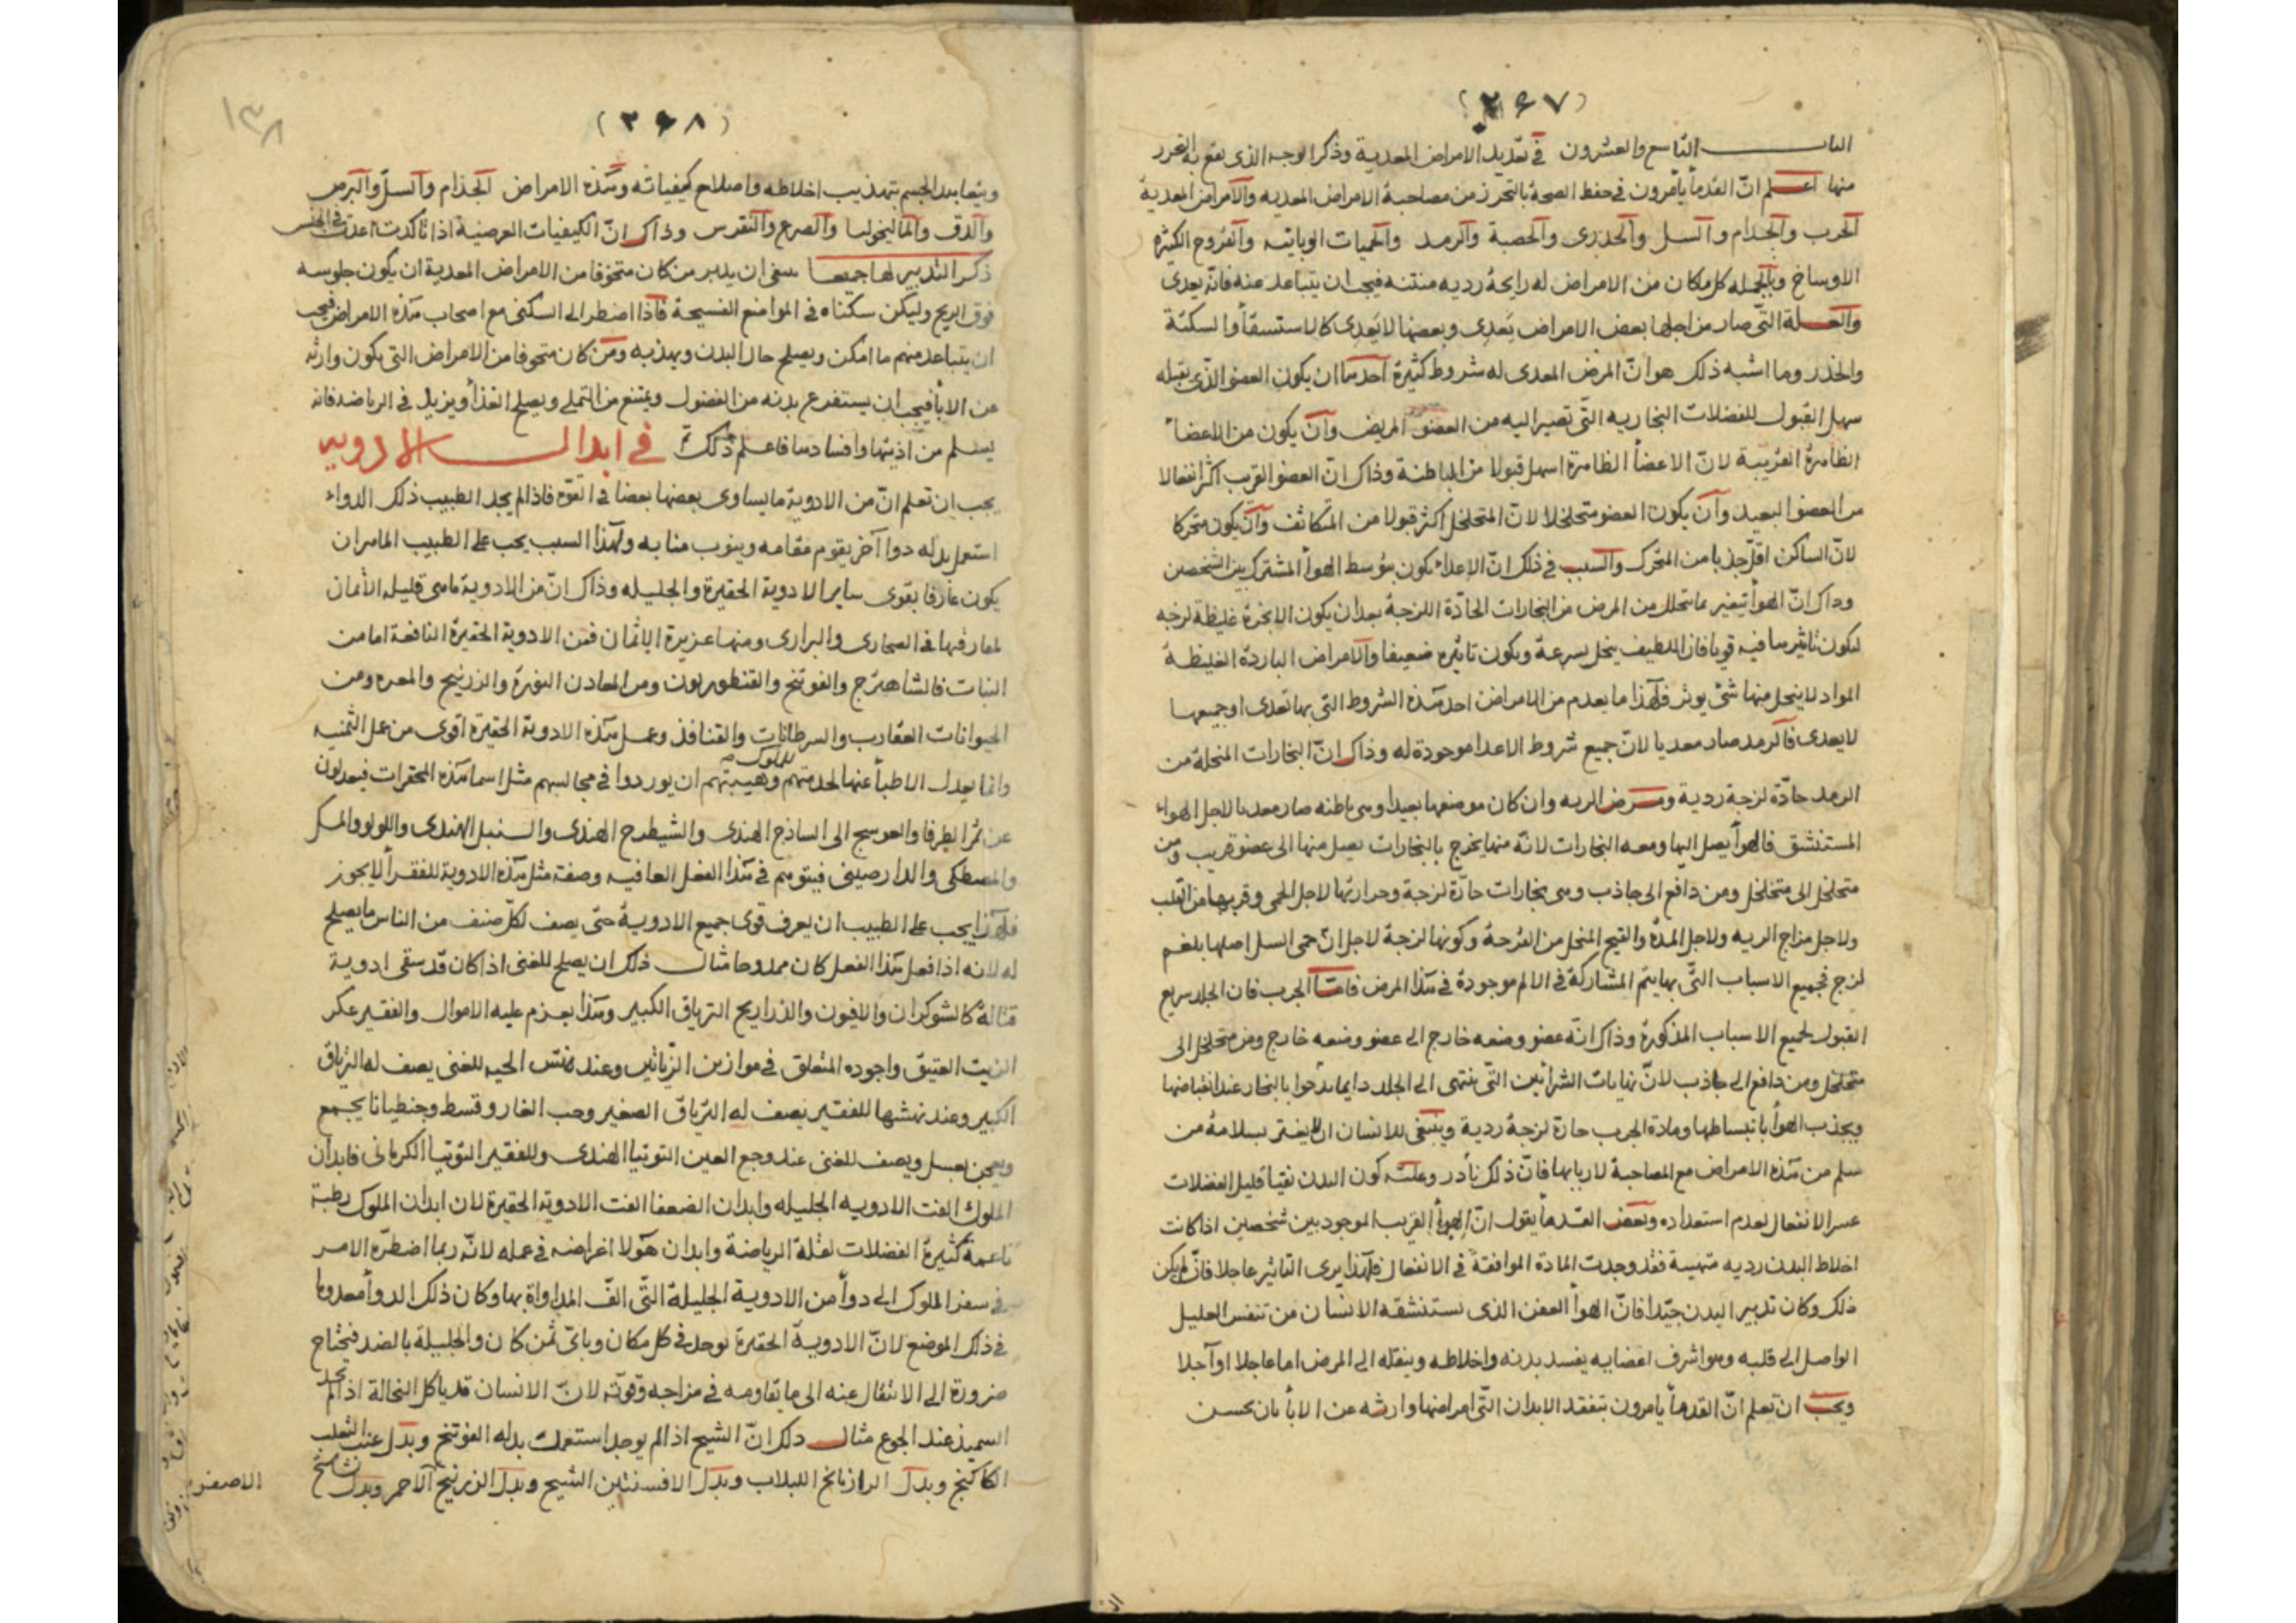 (٢٦٧)
الباب التاسع والعشرون في تعديد الامراض المعدية وذكر الوجه الذى يقع به التحرز
منها اعلم انّ القدمأ يأمرون في حفظ الصحة بالتحرز من مصاحبة الامراض المعديه والامراض المعدية
الجرب والجذام والسل والجدرى والحصبة والرمد والحميات الوبائيه والقروح الكثيرة
الاوساخ وبالجمله كل مكان من الامراض له رايحة رديه منتنه فيجب ان يتباعد عنه فانّه يعدى
والعلة التّى صار من اجلها بعض الامراض يَعدى وبعضها لا يَعدى كالاستسقأ والسكتة
والخدر وما اشبه ذلك هو انّ المرض المعدى له شروط كثيرة احدها ان يكون العضو الذّى يقبله
سهل القبول للفضلات البخاريه التّى تصير اليه من العضو المريض وآنّ يكون من الاعضأ
الظاهرة القريبة لانّ الاعضأ الظاهرة اسهل قبولا من الباطنة وذاك انّ العضو القريب اكثر انفعالا
من العضو البعيد وآن يكون العضو متخلخلا لانّ المتخلخل اكثر قبولا من المتكاثف وآن يكون متحركا
لانّ الساكن اقلّ جذبا من المتحرك والسبب في ذلك انّ الاعداء يكون بتوسط الهوأ المشترك بين الشخصين
وذاك انّ الهوأ يتغير بما يتحلل من المرض من البخارات الحادّة اللزجة بعد ان يكون الابخرة غليظة لزجه
ليكون تاثيرها فيه قويا فان اللطيف ينحل بسرعة ويكون تاثيره ضعيفا والامراض الباردة الغليظة
المواد لا ينحل منها شئ يوثر فلهذا ما يعدم من الامراض احد هذه الشروط التى بها تعدى او جميعها
لا يعدى فالرمد صار معديا لانّ جميع شروط الاعدا موجودة له وذاك انّ البخارات المنحلة من
الرمد حادّة لزجة ردية ومرض الريه وان كان موضعها بعيدا وهى باطنه صار معديا لاجل الهواء
المستنشق فالهوأ يصل اليها ومعه البخارات لانّه منها يخرج بالبخارات يصل منها الى عضو قريب ومن
متخلخل الى متخلخل ومن دافع الى جاذب وهى بخارات حادّة لزجة وحرارتها لاجل الحمى وقربها من القلب
ولاجل مزاج الريه ولاجل المدة والقيح المنحل من القرحة وكونها لزجة لاجل انّ حمى السل اصلها بلغم
لزج فجميع الاسباب التّى بها يتم المشاركة في الالم موجودة في هذا المرض فامّا الجرب فان الجلد سريع
القبول لجميع الاسباب المذكورة وذاك انّه عضو وضعه خارج الى عضو وضعه خارج ومن متخلخل الى
متخلخل ومن دافع الى جاذب لانّ نهايات الشرائين التّى ينتهى الى الجلد دايما تدخوا بالبخار عند انقباضها
ويجذب الهوأ بانبساطها ومادة الجرب حارة لزجة ردية وينبغى للانسان ان لا يغتر بسلامة من
سلم من هذه الامراض مع المصاحبة لاربابها فانّ ذلك نادر وعلته كون البدن نقيا قليل الفضلات
عسر الانفعال لعدم استعداده وبعض القدمأ يقول انّ الهوأ القريب الموجود بين شخصين اذا كانت
اخلاط البدن رديه متهيئة فقد وجدت المادة الموافقة في الانفعال فلهذا يرى التاثير عاجلا فان لم يكن
ذلك وكان تدبير البدن جيّدا فانّ الهوأ العفن الذى يستنشقه الانسان من تنفس العليل
الواصل الى قلبه وهو اشرف اعضايه يفسد بدنه واخلاطه وينقله الى المرض اما عاجلا او آجلا
ويجب ان تعلم انّ القدمأ يامرون بتفقد الابدان التّى امراضها وارثه عن الابأ بان يحسن
(٢٦٨)
١٣٨
ويتعاهد الجسم بتهذيب اخلاطه واصلاح كيفياته وهذه الامراض الجذام والسلّ والبرص
والدق والماليخوليا والصرع والنقرس وذاك انّ الكيفيات العرضية اذا تأكدت اعدت في الجنس
ذكر التدبير لها جميعها ينبغى ان يدبر من كان متخوفا من الامراض المعدية ان يكون جلوسه
فوق الريح وليكن سكناه في المواضع الفسيحة فاذا اضطر الى السكنى مع اصحاب هذه الامراض فيجب
ان يتباعد منهم ما امكن ويصلح حال البدن ويهذبه ومن كان متخوفا من الامراض التى يكون وارثه
عن الابأ فيجب ان يستفرغ بدنه من الفضول ويمتنع من التملى ويصلح الغذأ ويزيد في الرياضه فانه
يسلم من اذيتها وافسادها فاعلم ذلك في ابدال الادويه
يجب ان تعلم انّ من الادوية ما يساوى بعضها بعضا في القوّه فاذا لم يجد الطبيب ذلك الدواء
استعمل بدله دوا آخر يقوم مقامه وينوب منابه ولهذا السبب يجب على الطبيب الماهر ان
يكون عارفا بقوى ساير الادوية الحقيرة والجليله وذاك انّ من الادوية ما هى قليله الأثمان
لمعارفها في الصحارى والبرارى ومنها عزيزة الاثمان فمن الادوية الحقيرة النافعة اما من
النبات فالشاهترج والفوتنج والقنطوريون ومن المعادن النورة والزرنيخ والمغره ومن
الحيوانات العقارب والسرطانات والقنافذ وعمل هذه الادوية الحقيرة اقوى من عمل الثمنيه
وانما يعدل الاطبأ عنها لخدمتهم للملوك وهيبتهم ان يوردوا في مجالسهم مثل اسما هذه المحقرات فيعدلون
عن ثمر الطرفا والعوسج الى الساذج الهندى والشيطرج الهندى والسنبل الهندى واللولو والمسك
والمصطكى والدارصينى فيتوهم في هذا الفعل العافيه وصفة مثل هذه الادوية للفقرأ لا يجوز
فلهذا يجب على الطبيب ان يعرف قوى جميع الادوية حتّى يصف لكلّ صنف من الناس ما يصلح
له لانه اذا فعل هذا الفعل كان ممدوحا مثال ذلك ان يصلح للغنى اذا كان قد سقى ادوية
قتالة كالشوكران والافيون والذراريح الترياق الكبير وهذا يعزم عليه الاموال والفقير عكر
الزيت العتيق واجوده المتعلق في موازين الزياتين وعند نهش الحيه للغنى يصف له الترياق
الكبير وعند نهشها للفقير يصف له الترياق الصغير وحب الغار وقسط وجنطيانا يجمع
ويعجن بعسل ويصف للغنى عند وجع العين التوتيا الهندى وللفقير التوتيا الكرمانى فابدان
الملوك الفت الادويه الجليله وابدان الضعفا الفت الادوية الحقيرة لان ابدان الملوك رطبة
ناعمة كثيرة الفضلات لقلة الرياضة وابدان هولا اغراضه في عمله لانّه ربما اضطرّه الامر
في سفر الملوك الى دوأ من الادوية الجليلة التّى الف المداواة بها وكان ذلك الدوأ معدوما
في ذلك الموضع لانّ الادوية الحقيرة توجد في كل مكان وباىّ ثمن كان والجليلة بالضد فيحتاج
ضرورة الى الانتقال عنه الى ما يقاومه في مزاجه وقوّته لانّ الانسان قد ياكل النخالة اذا لم يجد
السميذ عند الجوع مثال ذلك انّ الشيح اذا لم يوجد استعملت بدله الفوتنج وبدل عنب الثعلب
الكاكنج وبدل الرازيانج اللبلاب وبدل الافسنتين الشيح وبدل الزرنيخ الاحمر وبدل
الاصفر